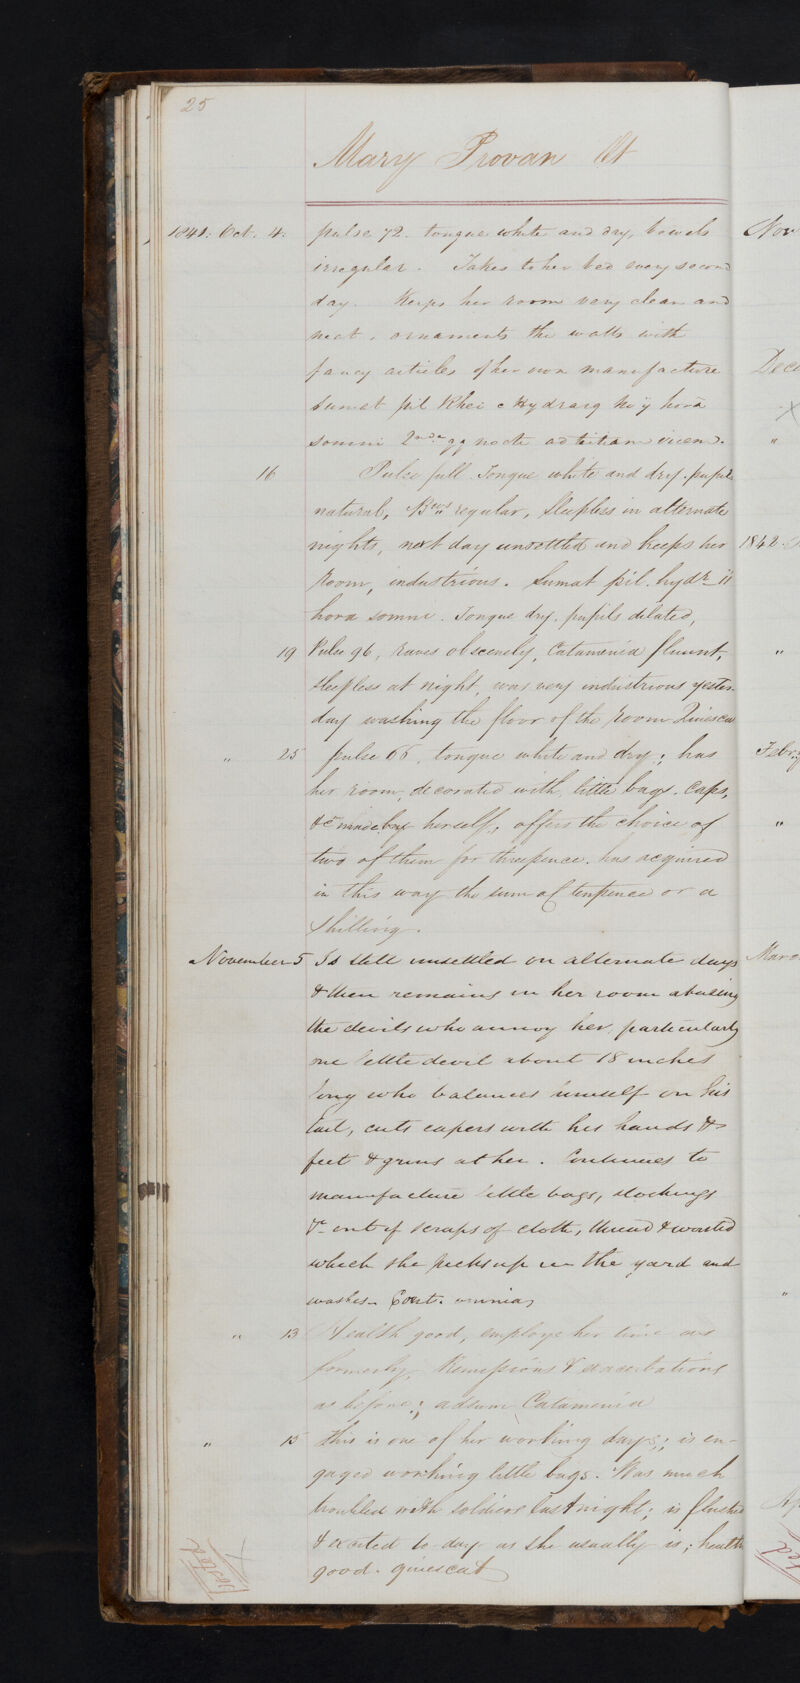 25
Mary Provan Æt
1841. Oct. 4. pulse 72. tongue white and dry, bowels Nov
irregular. Takes to her bed every second
day. Keeps her room very clean and
neat, ornaments the walls with
fancy articles of her own manufacture Dece
Sumat pil Rhei c Hydrarg No ij hora
somni 2nda qq nocte ad tertiam vicem. "
16 Pulse full. Tongue white and dry. pupils
natural, regular, Sleepless in alternate
nights, next day unsettled and keeps her 1842
room, industrious. Sumat pil. hydr. ii
hora somni. Tongue dry. pupils dilated,
19 Pulse 96, raves obscenely, Catamenia fluunt, "
sleepless at night, was very industrious yester-
day washing the floor of the room Quiescat
" 25 pulse 66, tongue white and dry; has Febry
her room, decorated with little bags. Caps,
&c made by herself, offers the choice of "
two of them for threepence. has acquired
in this way the sum of tenpence or a
shilling.
November 5 Is still unsettled on alternate days Marc
& then remains in her room abusing
the devils who annoy her, particularly
one little devil about 18 inches
long who balances himself on his
tail, cuts capers with his hands &
feet & grins at her. Continues to
manufacture little bags, stockings
&c out of scraps of cloth, thread & worsted
which she picks up in the yard and
washes. Cont. omnia "
" 13 Health good, employs her time as
formerly, Remissions & exacerbations
as before; adsunt Catamenia
" 15 this is one of her working days; is en-
gaged working little bags. Was much
troubled with soldiers last night; is flushed Ap
& excited to day as she usually is; health
good. quiescat
Posted
ted